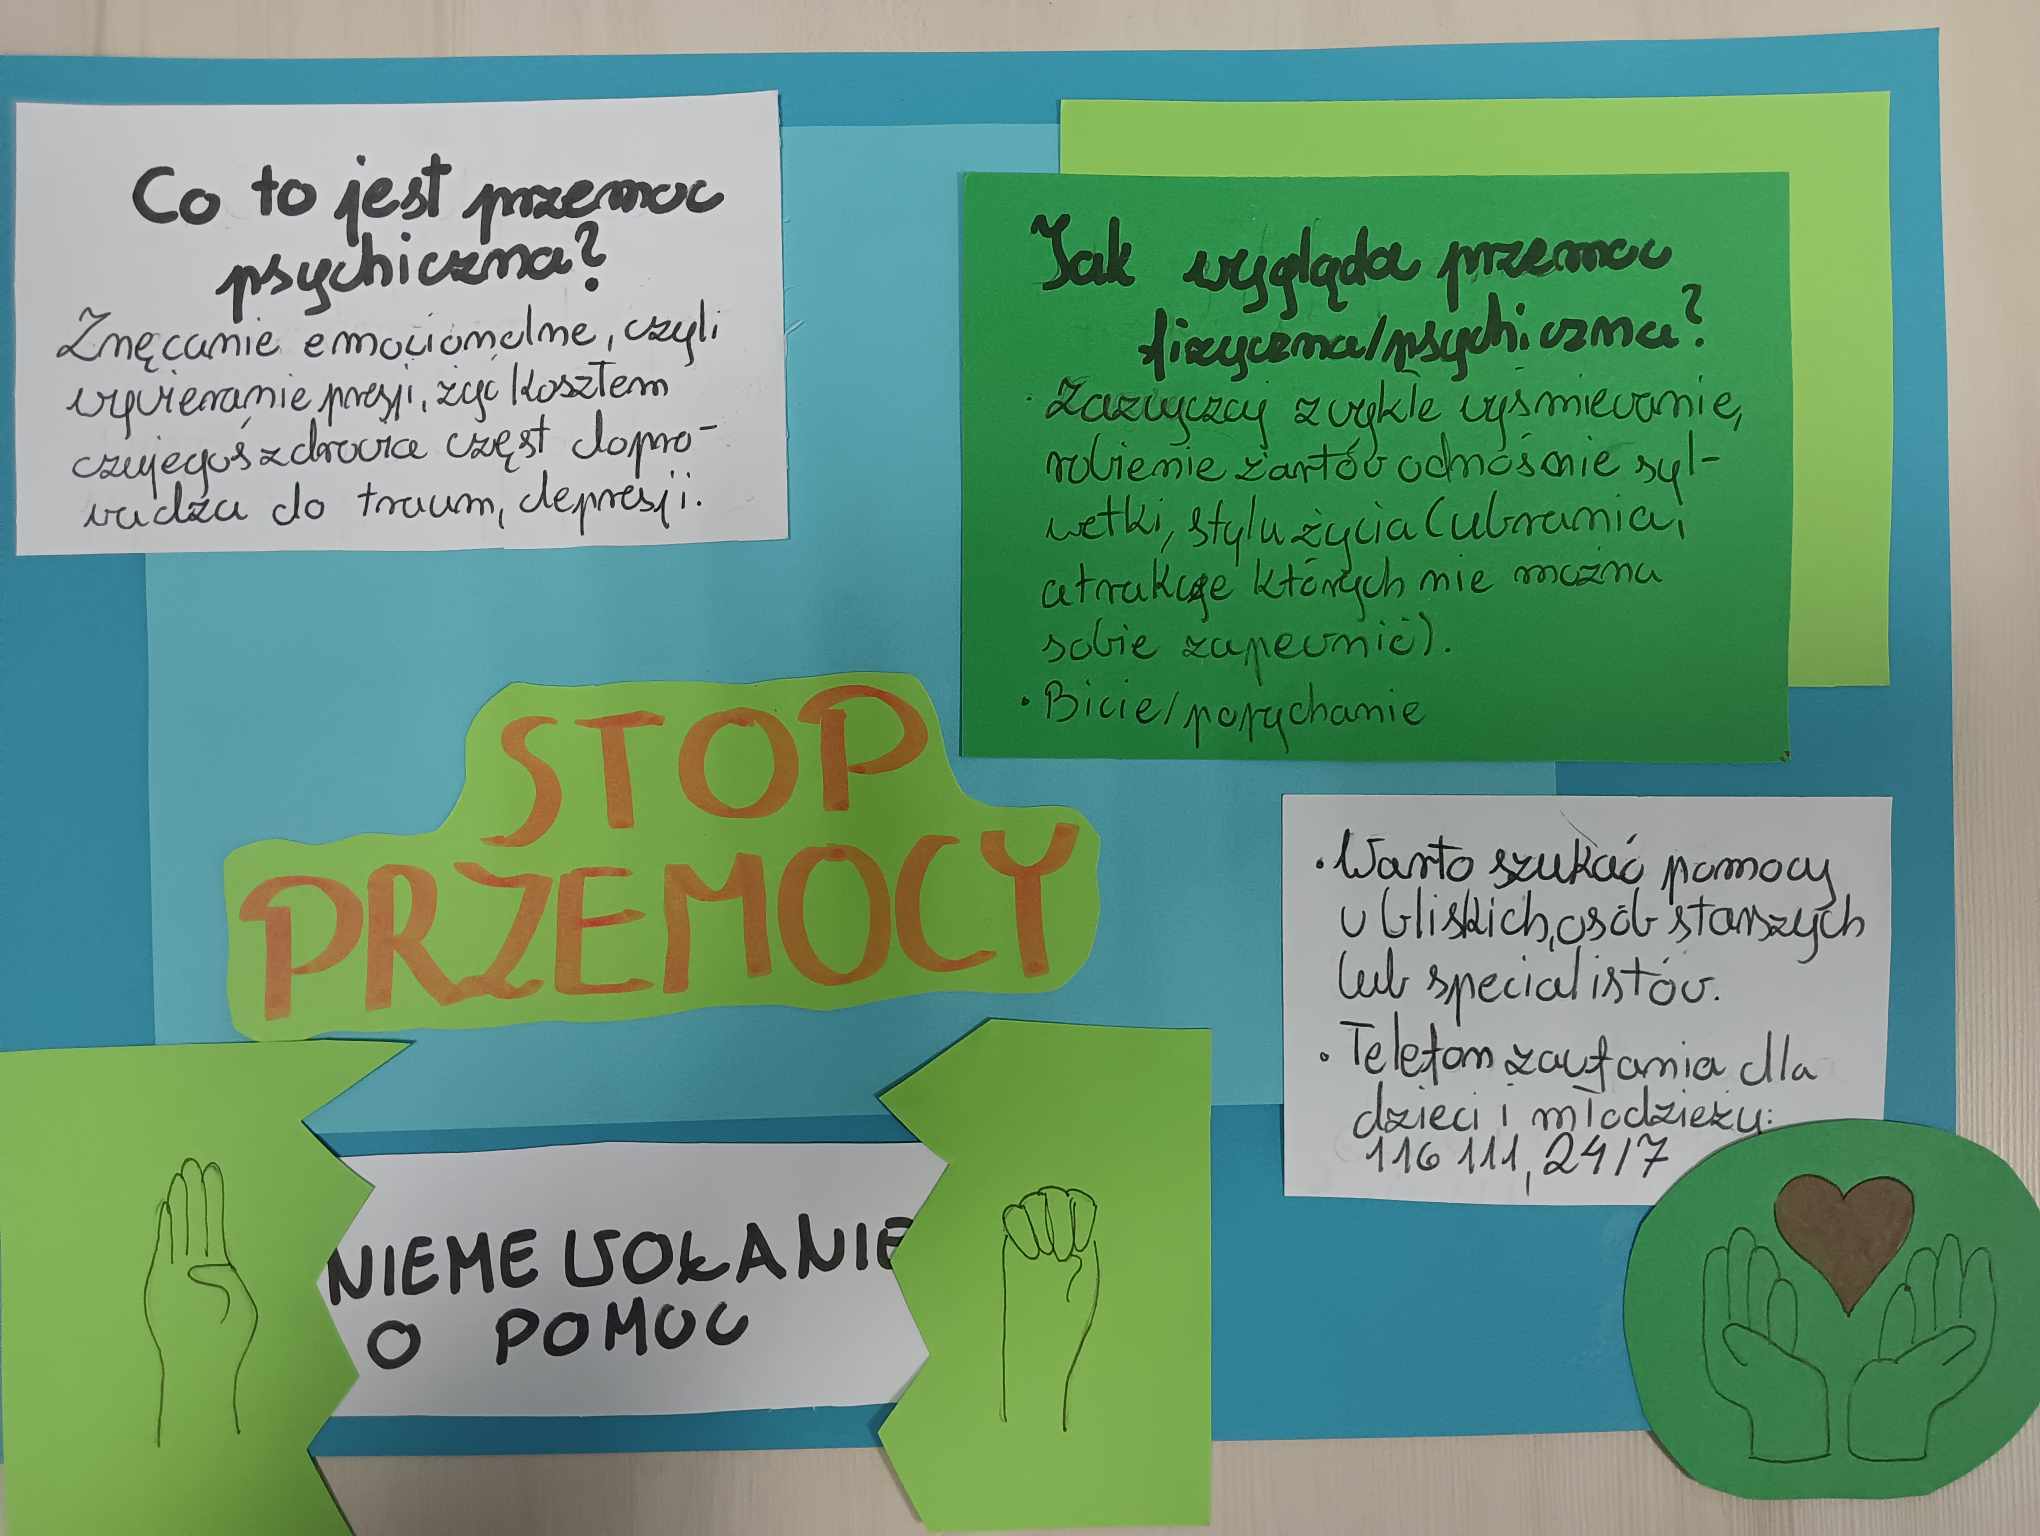 Co to jest przemoc
psychiczna?
Znęcanie emocionalne, czyli
wywieranie presji, żyć kosztem
czyjegoś zdrowia częst dopro-
wadza do traum, depresji.
Jak wygląda przemoc
fizyczna/psychiczna?
• Zazwyczaj zwykłe wyśmiewanie,
robienie żartów odnośnie syl-
wetki, stylu życia (ubrania,
atrakcje których nie można
sobie zapewnić).
• Bicie/popychanie
STOP
PRZEMOCY
• Warto szukać pomocy
u bliskich, osób starszych
lub specialistów.
• Telefon zaufania dla
dzieci i młodzieży:
116 111, 24/7
NIEME WOŁANIE
O POMOC